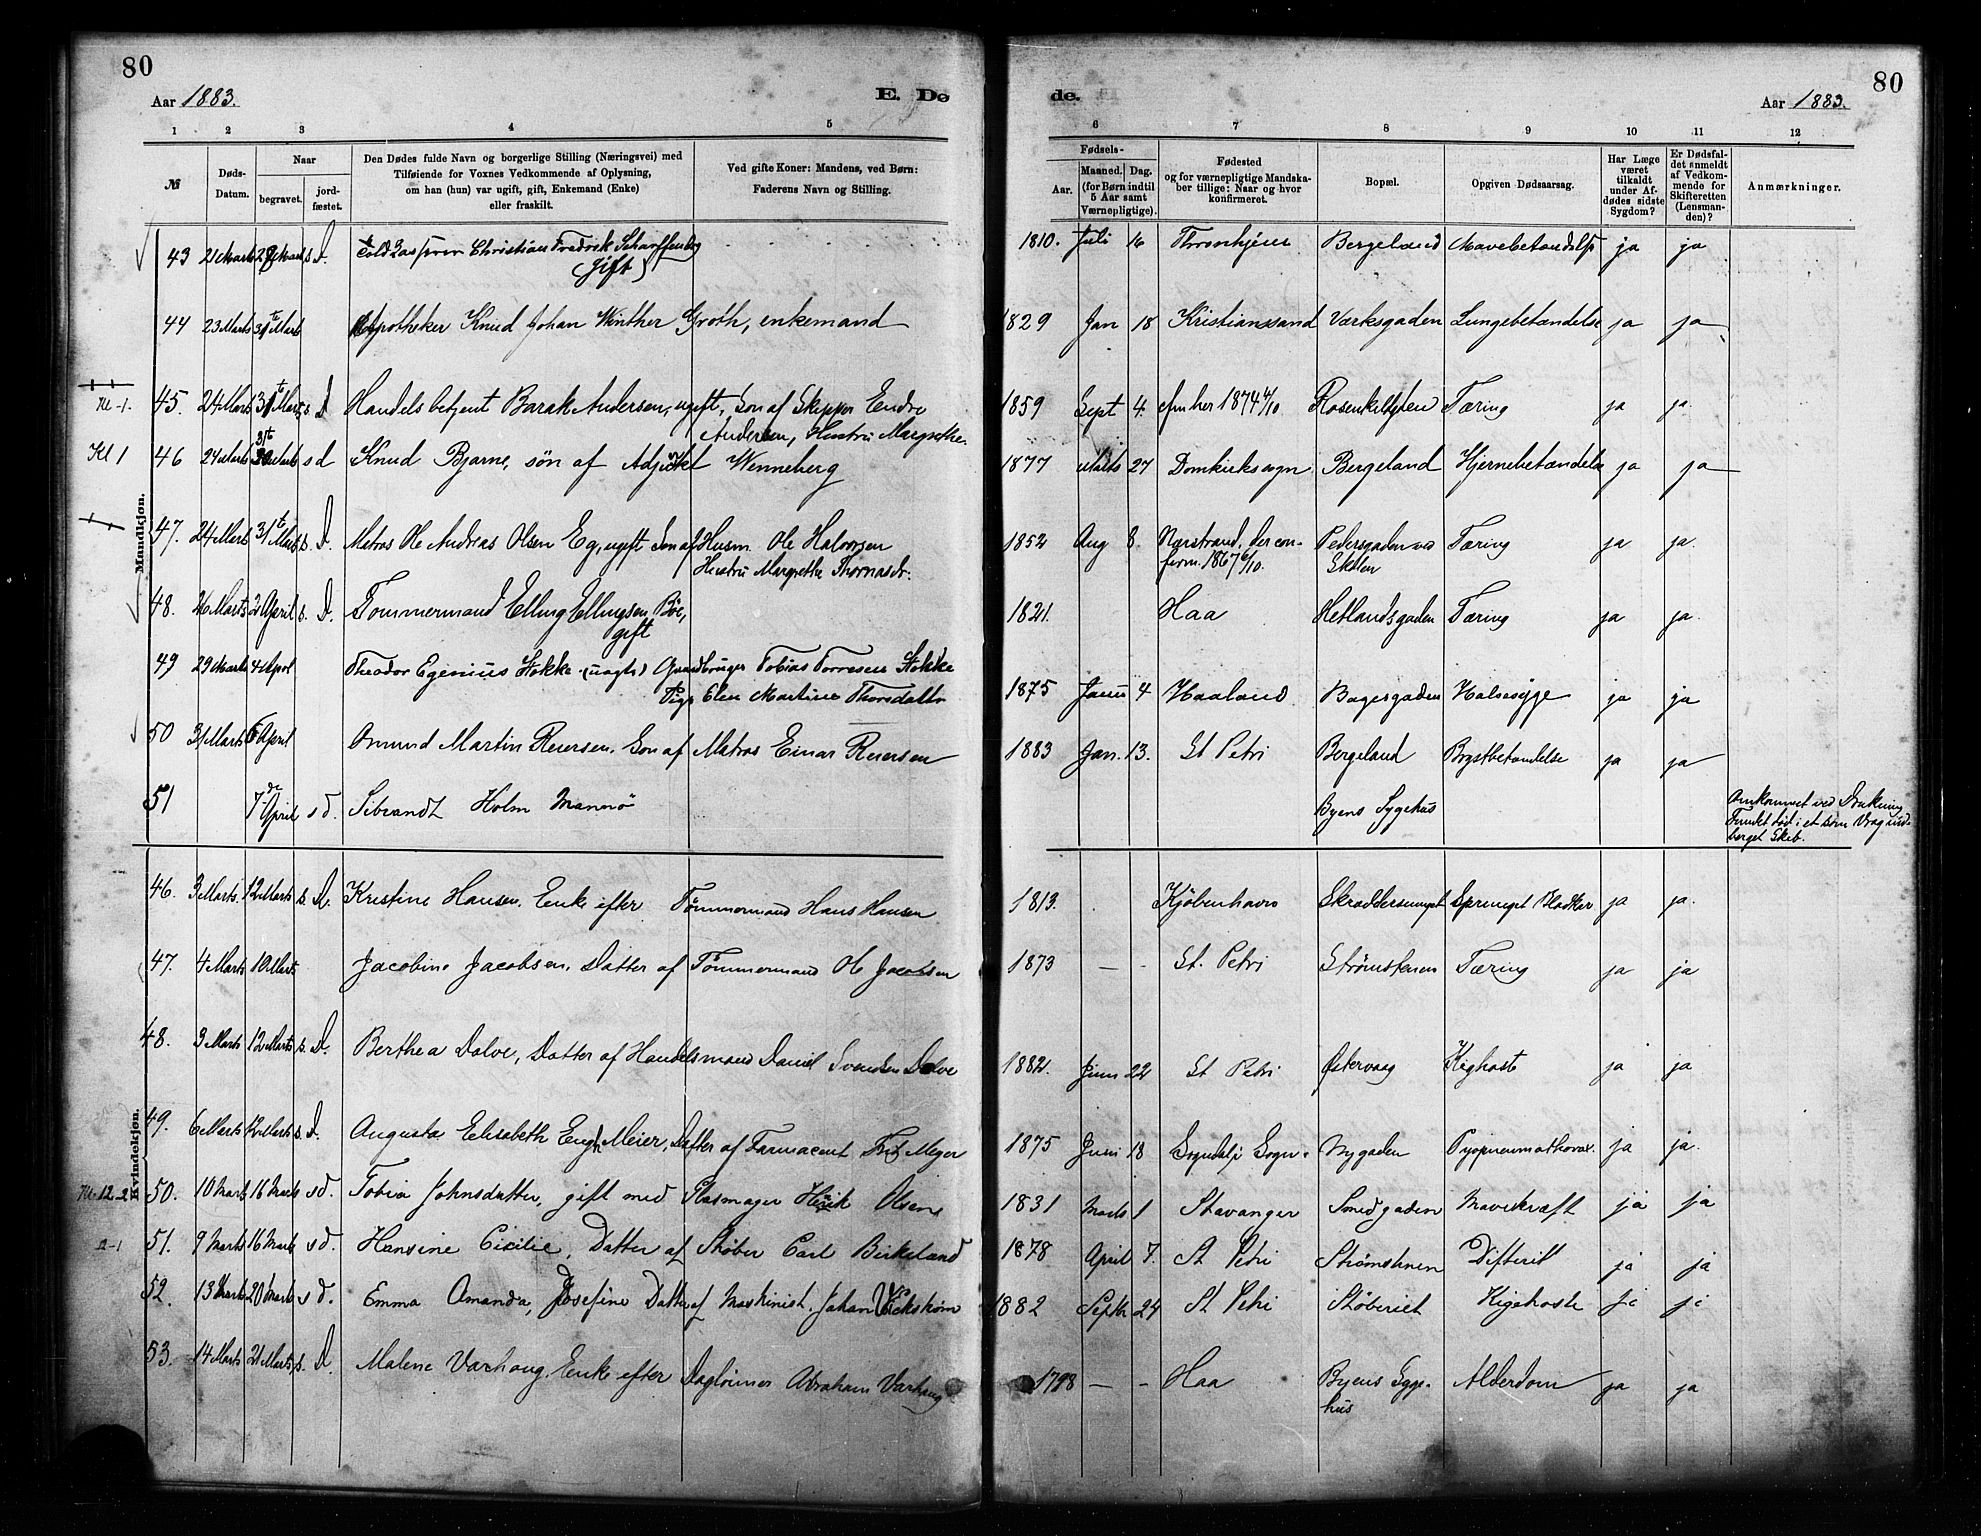 80
80
Aar 1883.
E. Dø
de.
Aar 1883.
1 2 3 4 5 6 7 8 9 10 11 12
№
Døds-Datum.
Naar
begravet.
jord-fæstet.
Den Dødes fulde Navn og borgerlige Stilling (Næringsvei) med
Tilføiende for Voxnes Vedkommende af Oplysning,
om han (hun) var ugift, gift, Enkemand (Enke)
eller fraskilt.
Ved gifte Koner: Mandens, ved Børn:
Faderens Navn og Stilling.
Fødsels-
Aar.
Maaned.
Dag.
(for Børn indtil
5 Aar samt
Værnepligtige).
Fødested
og for værnepligtige Mandska-
ber tillige: Naar og hvor
konfirmeret.
Bopæl.
Opgiven Dødsaarsag.
Har Læge
været
tilkaldt
under Af-
dødes sidste
Sygdom?
Er Dødsfal-
det anmeldt
af Vedkom-
mende for
Skifteretten
(Lensman-
den)?
Anmærkninger.
Mandkjøn.
43 21 Marts 28 Marts s D. Toldkasserer Christian Fredrik Scharffenberg 1810. Juli 16 Thronhjem Bergeland Mavebetændelse ja ja
(Gift)
44 23 Marts 31te Marts Apotheker Knud Johan Winther Groth, enkemand 1829 Jan 18 Kristianssand Værksgaden Lungebetændelse ja ja
Kl-1. 45. 24 Marts 31te Marts s D Handelsbetjent Barak Andersen, ugift, Søn af Skipper Endre 1859 Sept 4. 1874 4/10 Rosenkildeten Tæring ja ja
Andersen, Hustru Margrethe
Kl 1 46 24 Marts 31te Marts s d Knud Bjarne, søn af Adjunkt Wenneberg 1877 Marts 27 Domkirkesogn. Bergeland Hjernebetændelse ja ja
47. 24 Marts 31te Marts s. D. Matros Ole Andreas Olsen Eg, ugift Søn af Husm. Ole Halvorsen 1852 Aug 8. Nærstrand, der con- Pedersgaden ved Tæring ja ja.
Hustru Margrethe Thomasdr. firm. 1867 6/10. Skolen
48. 26 Marts 2 April s. D. Tømmermand Elling Ellingsen Bøe, 1821. Haa Hetlandsgaden Tæring ja ja.
gift
49 29 Marts 4 April Theodor Egenius Stokke (uægte) Gaardbruger Tobias Torresen Stokke
Pige Elen Martine Thorsdatter 1875 Januar 4 Haaland Bagergaden Halssyge ja ja
50 31 Marts 6 April Omund Martin Reiersen. Søn af Matros Einar Reiersen 1883 Jan. 13. St Petri Bergeland Brystbetændelse ja ja
51 7de April s d. Sibrandt Holm Mannø Byens Sygehus Omkommet ved Drukning
Fundet død i et som Vrag ind-
berget Skib.
Kvindekjøn.
46. 3 Marts. 12 Marts s. D. Kristine Hansen. Enke efter Tømmermand Hans Hansen 1813. Kjøbenhavn Skræddersmuget Sprunget Blodkar ja ja.
47. 4 Marts 10 Marts Jacobine Jacobsen. Datter af Tømmermand Ole Jacobsen 1873 — - St. Petri Strømstenen Tæring ja ja
48. 3 Marts 12 Marts s. D. Berthea Dalve, Datter af Handelsmand Daniel Svendsen Dalve 1882. Juni 22 St Petri Østervaag Kighoste ja ja
49. 6 Marts 12 Marts s. D. Augusta Elisabeth Engh Meier, Datter af Farmaceut Fritz Meyer 1875 Juni 18 Sogndal i Sogn. Nygaden Pyopneumothorax. ja ja.
Kl. 12-2 50. 10 Marts 16 Marts s d. Tobia Johnsdatter, gift med Olsen 1831 Marts 1 Stavanger Smedgaden Mavekræft ja ja
51. 9 Marts 16 Marts s d. Hansine Cicilie, Datter af Støber Carl Birkeland 1878 April 7. St Petri Strømstenen Difterit ja ja
52. 13 Marts 20 Marts s d. Emma Amanda, Josefine Datter af Maskinist. Johan Wickstrøm 1882 Septbr 24 St Petri Støberiet Kigehoste ja ja
53. 14 Marts 21 Marts s. D Malene Varhaug. Enke efter Dagleiner Abraham Varhaug 1798 — - Haa Byens Syge- Alderdom ja ja
hus